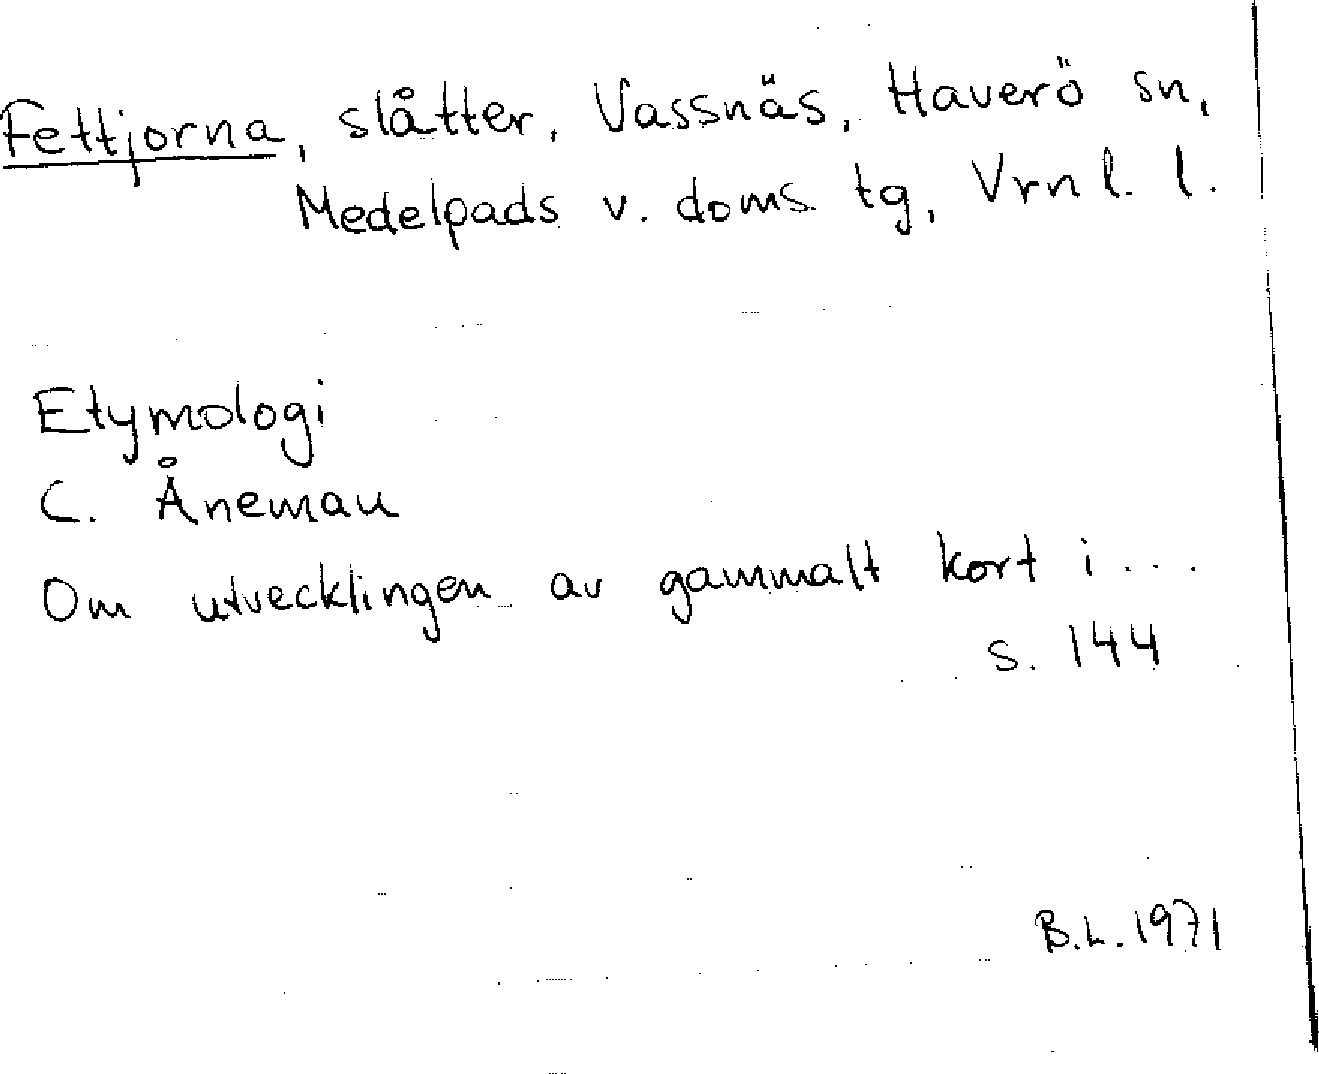 Fettjorna, slåtter, Vassnäs, Haverö sn,
Medelpads v. doms. tg, Vrnl. l.
Etymologi
C. Åneman
Om utvecklingen av gammalt kort i ...
s. 144
B.L. 1971